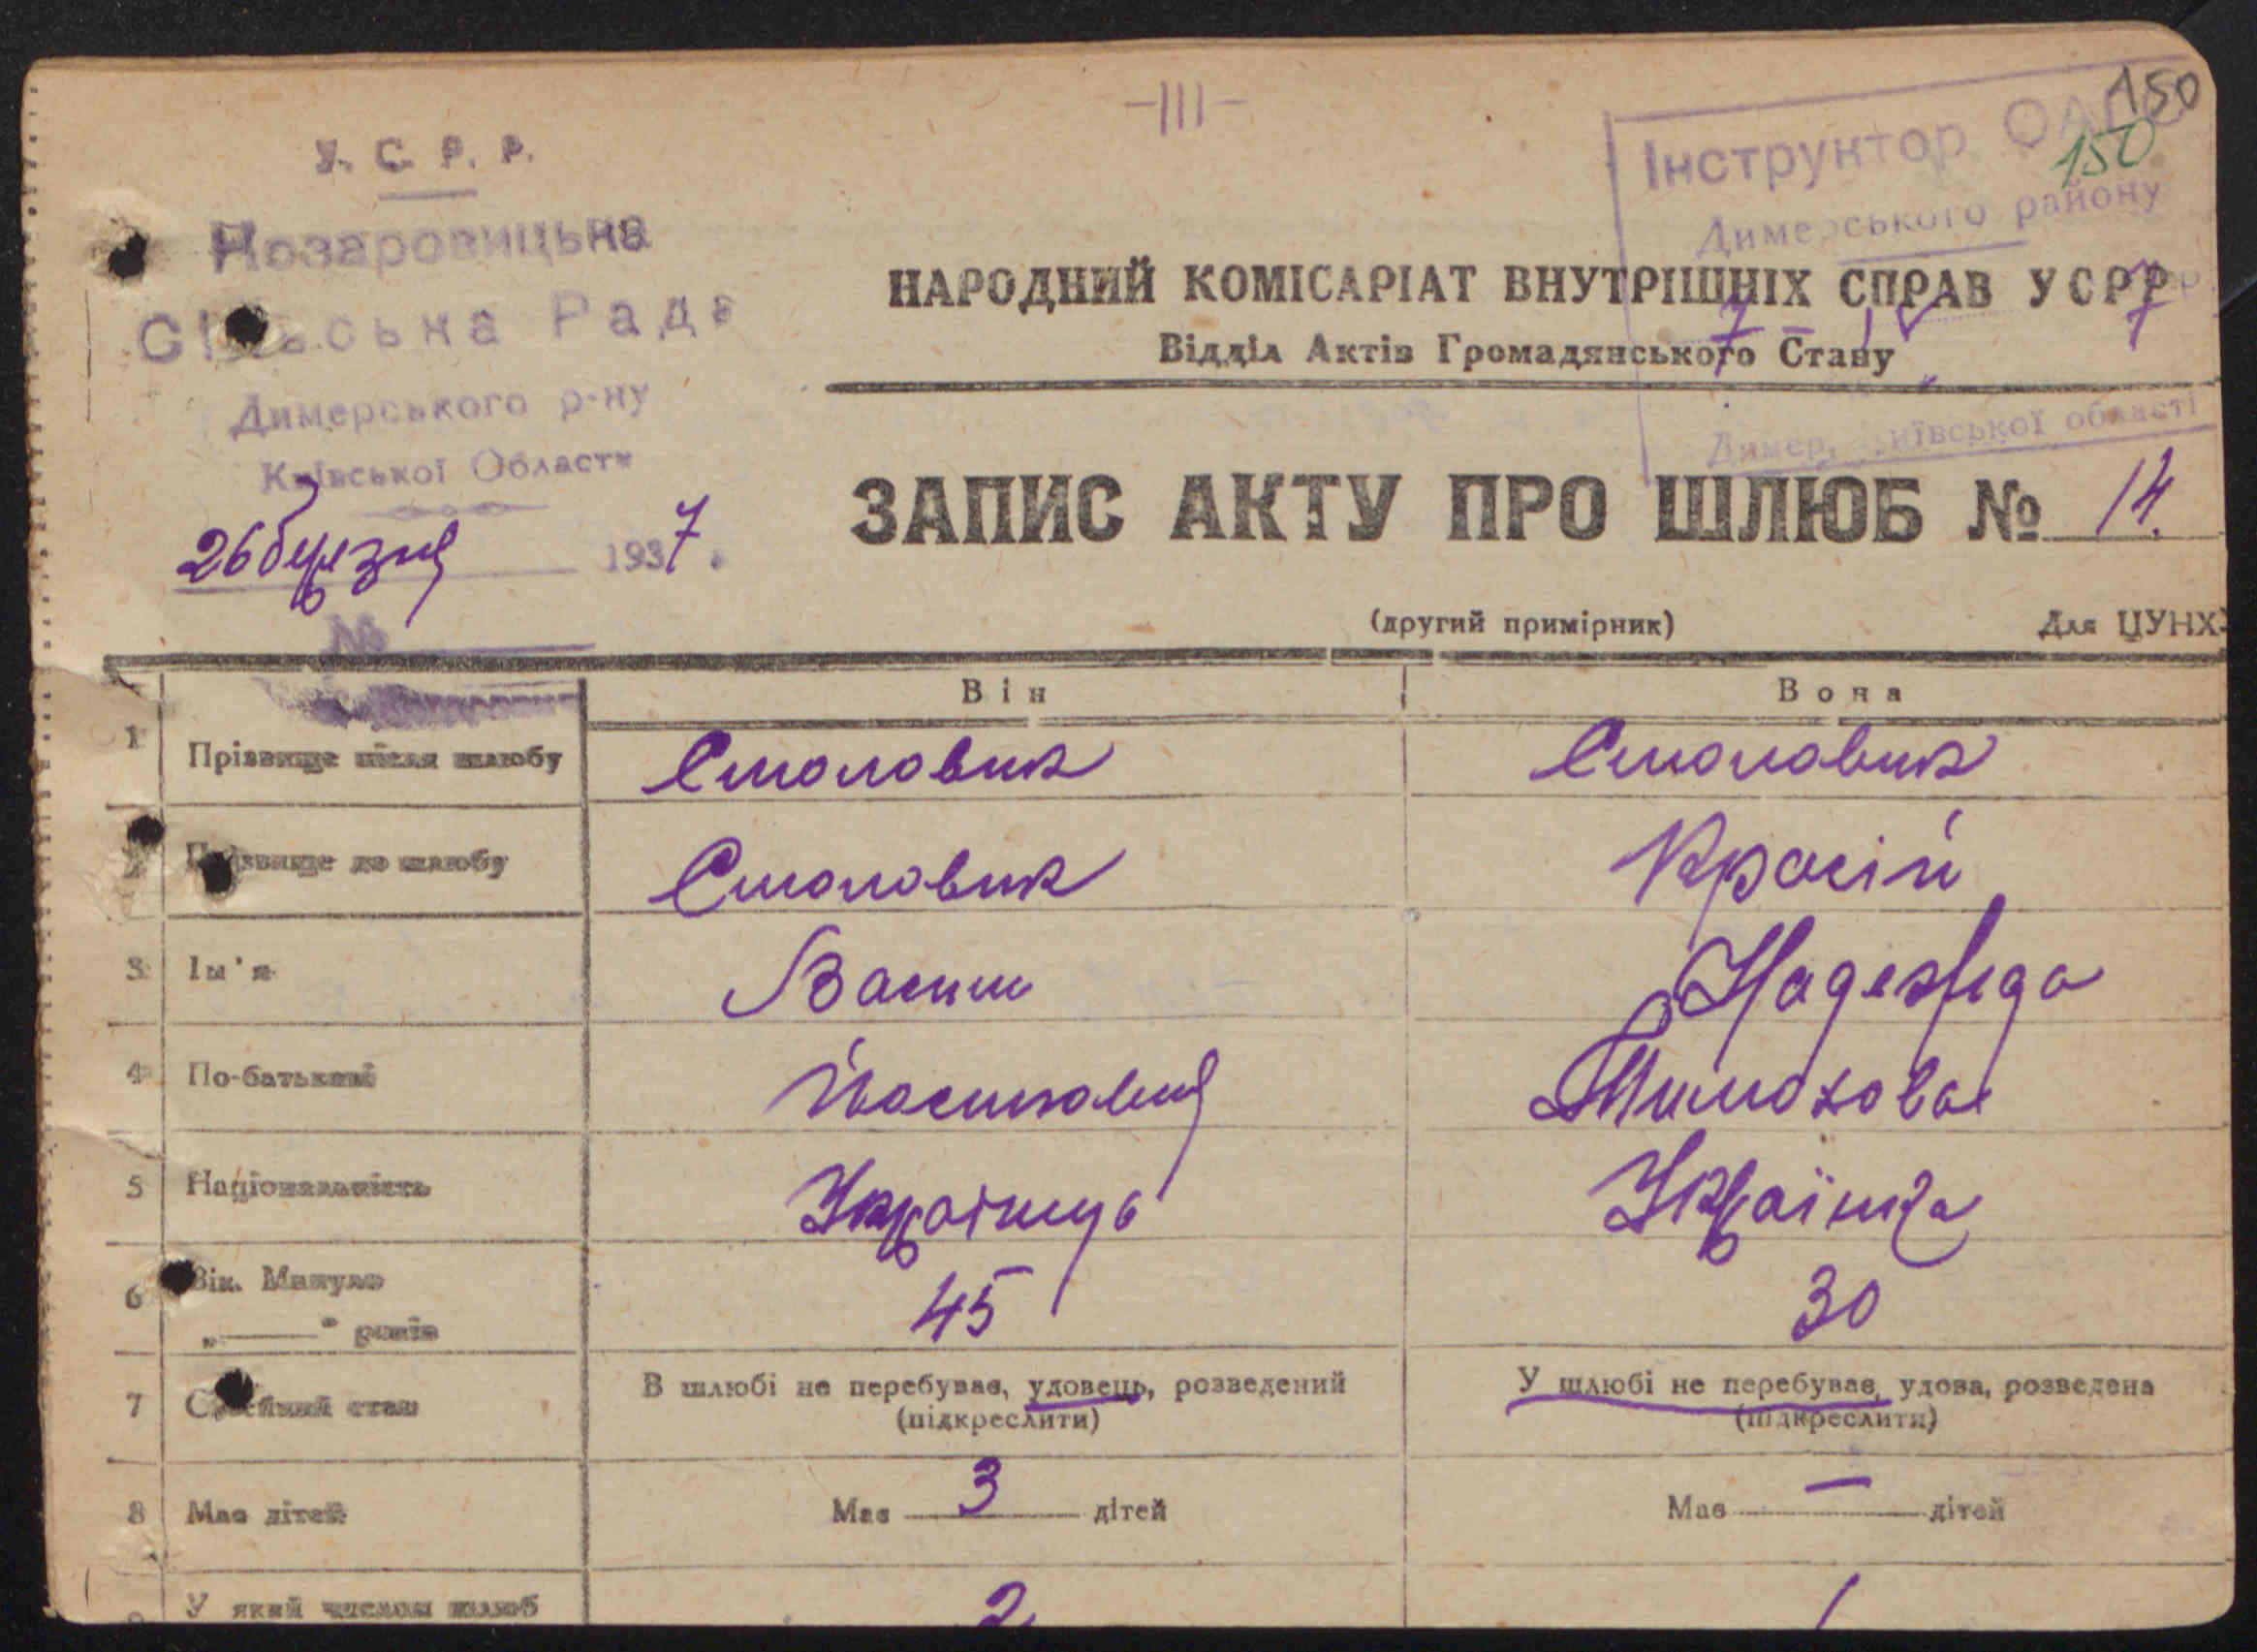 -111-
150
150
У. С. Р. Р.
Козаровицьна
Сільська Рада
Димерського р-ну
Київської Области
26 березня 1937 .
№
Інструктор ОАГС
Димерського району
7 - IV 7
Димер, Київської області
НАРОДНИЙ КОМІСАРІАТ ВНУТРІШНІХ СПРАВ УСРР
Відділ Актів Громадянського Стану
ЗАПИС АКТУ ПРО ШЛЮБ № 14.
(другий примірник) Для ЦУНХ
Він Вона
1 Прізвище після шлюбу Столовик Столовик
2 Прізвище до шлюбу Столовик Красій
3 Ім'я Васил Надежда
4 По-батькові Йосипович Тимохова
5 Національність Українць Українка
6 Вік. Минуло
„——" років 45 30
7 Сімейний стан В шлюбі не перебуває, удовець, розведений У шлюбі не перебуває, удова, розведена
(підкреслити) (підкреслити)
8 Має дітей Має 3 дітей Має — дітей
9 У який числом шлюб 2 1